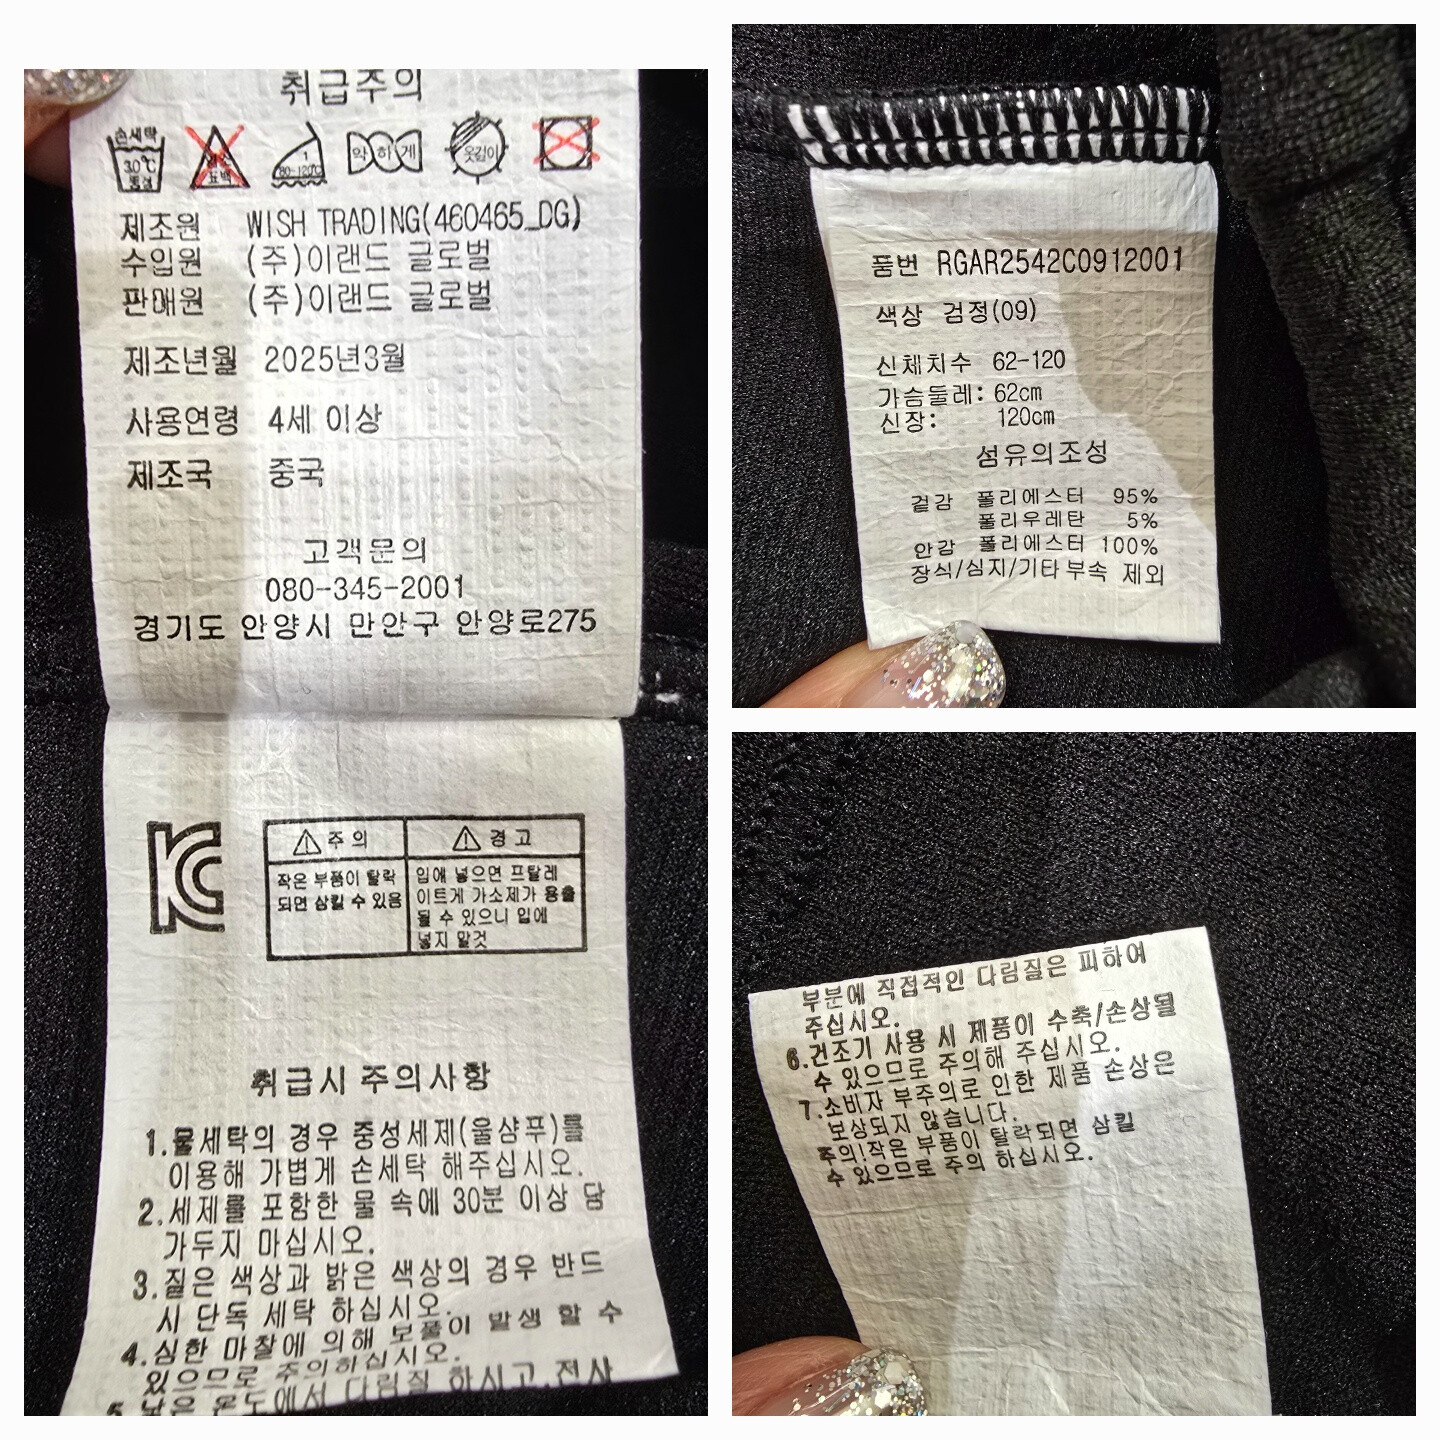 취급주의
손세탁
30℃
중성
표백
1
80-120℃
약하게
옷걸이
제조원 WISH TRADING(460465_DG)
수입원 (주)이랜드 글로벌
판매원 (주)이랜드 글로벌
제조년월 2025년3월
사용연령 4세 이상
제조국 중국
고객문의
080-345-2001
경기도 안양시 만안구 안양로275
주의
작은 부품이 탈락
되면 삼킬 수 있음
경고
입에 넣으면 프탈레
이트계 가소제가 용출
될 수 있으니 입에
넣지 말것
취급시 주의사항
1.물세탁의 경우 중성세제(울샴푸)를
이용해 가볍게 손세탁 해주십시오.
2.세제를 포함한 물 속에 30분 이상 담
가두지 마십시오.
3.짙은 색상과 밝은 색상의 경우 반드
시 단독 세탁 하십시오.
4.심한 마찰에 의해 보풀이 발생 할 수
있으므로 주의하십시오.
5.낮은 온도에서 다림질 하시고,전사
품번 RGAR2542C0912001
색상 검정(09)
신체치수 62-120
가슴둘레: 62cm
신장: 120cm
섬유의조성
겉감 폴리에스터 95%
폴리우레탄 5%
안감 폴리에스터 100%
장식/심지/기타부속 제외
부분에 직접적인 다림질은 피하여
주십시오.
6.건조기 사용 시 제품이 수축/손상될
수 있으므로 주의해 주십시오.
7.소비자 부주의로 인한 제품 손상은
보상되지 않습니다.
주의!작은 부품이 탈락되면 삼킬
수 있으므로 주의 하십시오.